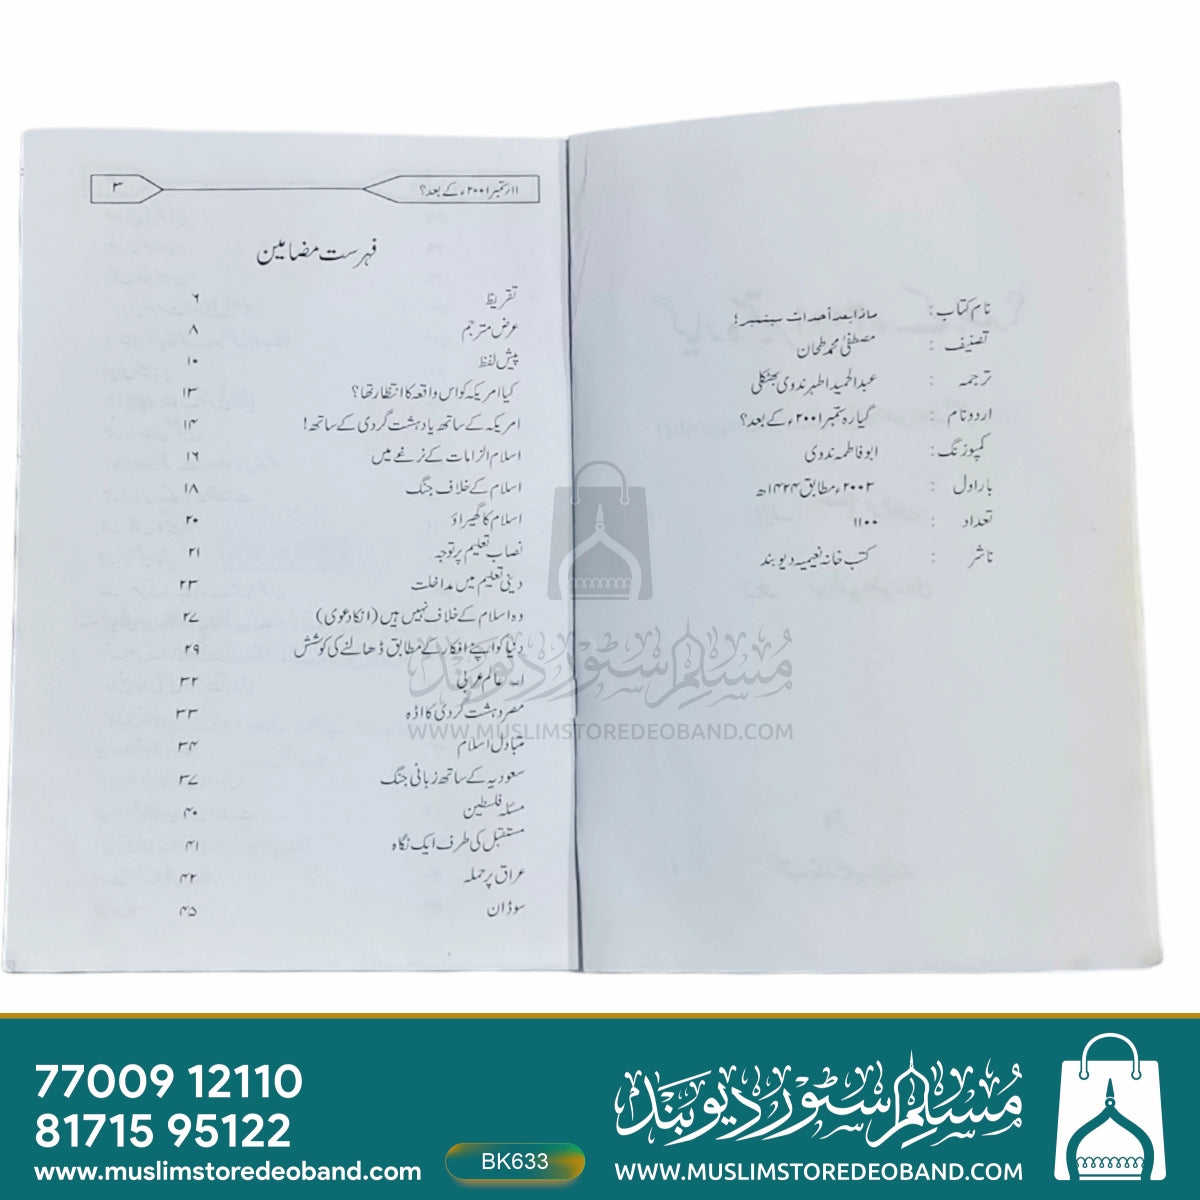 نام کتاب : ماذا بعد أحداث سبتمبر؟
تصنیف : مصطفیٰ محمد طحان
ترجمہ : عبدالحمید اطہر ندوی بھٹکلی
اردو نام : گیارہ ستمبر ۲۰۰۱ء کے بعد؟
کمپوزنگ : ابو فاطمہ ندوی
بار اول : ۲۰۰۲ء مطابق ۱۴۲۴ھ
تعداد : ۱۱۰۰
ناشر : کتب خانہ نعیمیہ دیوبند
۱۱/ستمبر ۲۰۰۱ء کے بعد؟ ۳
فہرست مضامین
تقریظ ۶
عرض مترجم ۸
پیش لفظ ۱۰
کیا امریکہ کو اس واقعہ کا انتظار تھا؟ ۱۳
امریکہ کے ساتھ یا دہشت گردی کے ساتھ! ۱۴
اسلام الزامات کے نرغے میں ۱۶
اسلام کے خلاف جنگ ۱۸
اسلام کا گھیراؤ ۲۰
نصاب تعلیم پر توجہ ۲۱
دینی تعلیم میں مداخلت ۲۳
وہ اسلام کے خلاف نہیں ہیں (انکا دعوی) ۲۷
دنیا کو اپنے افکار کے مطابق ڈھالنے کی کوشش ۲۹
عالم عربی ۳۲
مصر دہشت گردی کا اڈہ ۳۳
متبادل اسلام ۳۴
سعودیہ کے ساتھ زبانی جنگ ۳۷
مسئلہ فلسطین ۴۰
مستقبل کی طرف ایک نگاہ ۴۱
عراق پر حملہ ۴۲
سوڈان ۴۵
مسلم سٹور دیوبند
WWW.MUSLIMSTOREDEOBAND.COM
77009 12110
81715 95122
www.muslimstoredeoband.com
BK633
مسلم سٹور دیوبند
WWW.MUSLIMSTOREDEOBAND.COM